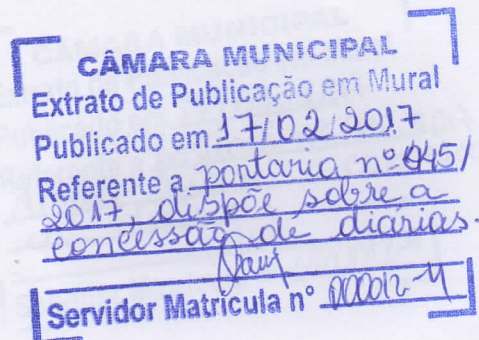 CÂMARA MUNICIPAL
Extrato de Publicação em Mural
Publicado em 17/02/2017
Referente a portaria nº 045/
2017, dispõe sobre a
concessão de diárias.
Servidor Matrícula nº 000012-4